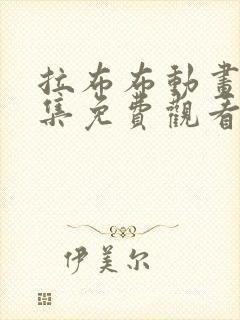 拉布布動畫
集免費觀看
伊美尔